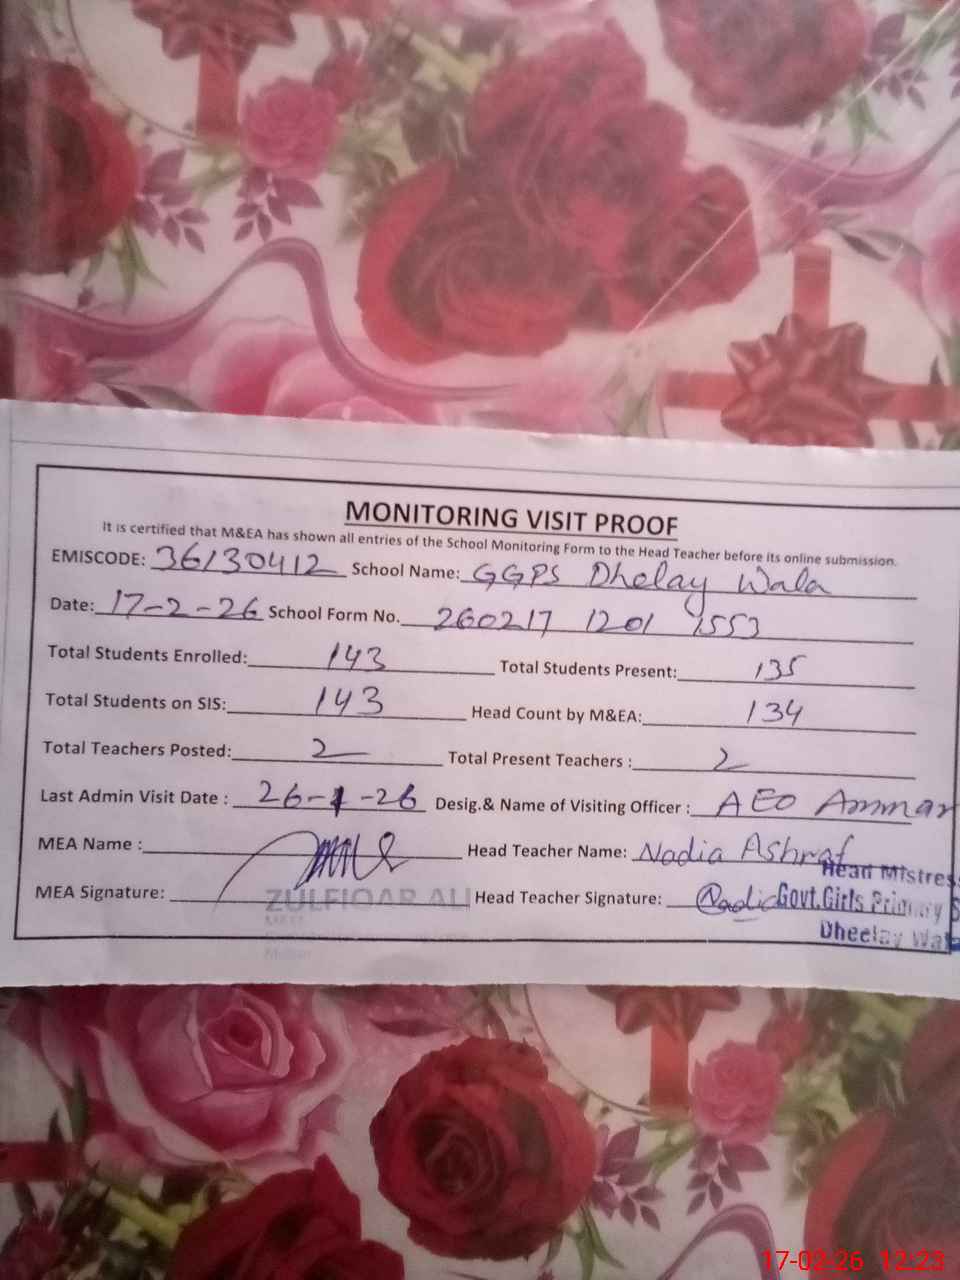 MONITORING VISIT PROOF
It is certified that M&EA has shown all entries of the School Monitoring Form to the Head Teacher before its online submission.
EMISCODE: 36130412 School Name: GGPS Dhelay Wala
Date: 17-2-26 School Form No. 260217 1201 1553
Total Students Enrolled: 143 Total Students Present: 135
Total Students on SIS: 143 Head Count by M&EA: 134
Total Teachers Posted: 2 Total Present Teachers : 2
Last Admin Visit Date : 26-1-26 Desig.& Name of Visiting Officer : AEO Ammar
MEA Name : Head Teacher Name: Nadia Ashraf
MEA Signature: ZULFIQAR ALI Head Teacher Signature: Nadia
Head Mistres
Govt.Girls Primary S
Dheelay Wal
17-02-26 12:23